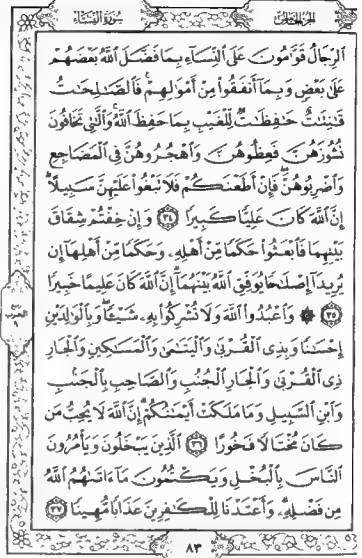 الجزء الخامس
سورة النساء
الرِّجَالُ قَوَّٰمُونَ عَلَى ٱلنِّسَآءِ بِمَا فَضَّلَ ٱللَّهُ بَعْضَهُمْ
عَلَىٰ بَعْضٍ وَبِمَآ أَنفَقُوا۟ مِنْ أَمْوَٰلِهِمْ ۚ فَٱلصَّٰلِحَٰتُ
قَٰنِتَٰتٌ حَٰفِظَٰتٌ لِّلْغَيْبِ بِمَا حَفِظَ ٱللَّهُ ۚ وَٱلَّٰتِى تَخَافُونَ
نُشُوزَهُنَّ فَعِظُوهُنَّ وَٱهْجُرُوهُنَّ فِى ٱلْمَضَاجِعِ
وَٱضْرِبُوهُنَّ ۖ فَإِنْ أَطَعْنَكُمْ فَلَا تَبْغُوا۟ عَلَيْهِنَّ سَبِيلًا ۗ
إِنَّ ٱللَّهَ كَانَ عَلِيًّا كَبِيرًا ٣٤ وَإِنْ خِفْتُمْ شِقَاقَ
بَيْنِهِمَا فَٱبْعَثُوا۟ حَكَمًا مِّنْ أَهْلِهِۦ وَحَكَمًا مِّنْ أَهْلِهَآ إِن
يُرِيدَآ إِصْلَٰحًا يُوَفِّقِ ٱللَّهُ بَيْنَهُمَآ ۗ إِنَّ ٱللَّهَ كَانَ عَلِيمًا خَبِيرًا
٣٥ ۞ وَٱعْبُدُوا۟ ٱللَّهَ وَلَا تُشْرِكُوا۟ بِهِۦ شَيْـًٔا ۖ وَبِٱلْوَٰلِدَيْنِ
إِحْسَٰنًا وَبِذِى ٱلْقُرْبَىٰ وَٱلْيَتَٰمَىٰ وَٱلْمَسَٰكِينِ وَٱلْجَارِ
ذِى ٱلْقُرْبَىٰ وَٱلْجَارِ ٱلْجُنُبِ وَٱلصَّاحِبِ بِٱلْجَنۢبِ
وَٱبْنِ ٱلسَّبِيلِ وَمَا مَلَكَتْ أَيْمَٰنُكُمْ ۗ إِنَّ ٱللَّهَ لَا يُحِبُّ مَن
كَانَ مُخْتَالًا فَخُورًا ٣٦ ٱلَّذِينَ يَبْخَلُونَ وَيَأْمُرُونَ
ٱلنَّاسَ بِٱلْبُخْلِ وَيَكْتُمُونَ مَآ ءَاتَىٰهُمُ ٱللَّهُ
مِن فَضْلِهِۦ ۗ وَأَعْتَدْنَا لِلْكَٰفِرِينَ عَذَابًا مُّهِينًا ٣٧
٨٣